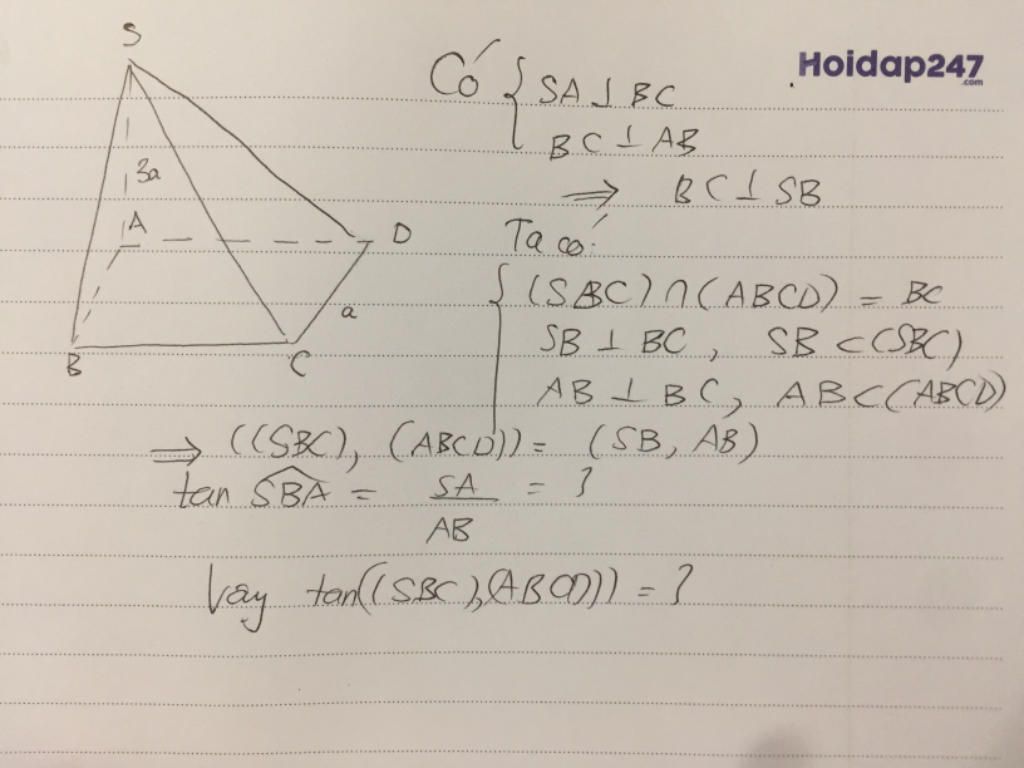 S
Có { SA ⊥ BC
Hoidap247
.com
BC ⊥ AB
3a
⟹ BC ⊥ SB
A
D
Ta có:
{ (SBC) ∩ (ABCD) = BC
a
SB ⊥ BC, SB ⊂ (SBC)
B
C
AB ⊥ BC, AB ⊂ (ABCD)
⟹ ((SBC), (ABCD)) = (SB, AB)
tan \widehat{SBA} = \frac{SA}{AB} = 3
Vậy tan((SBC),(ABCD)) = 3